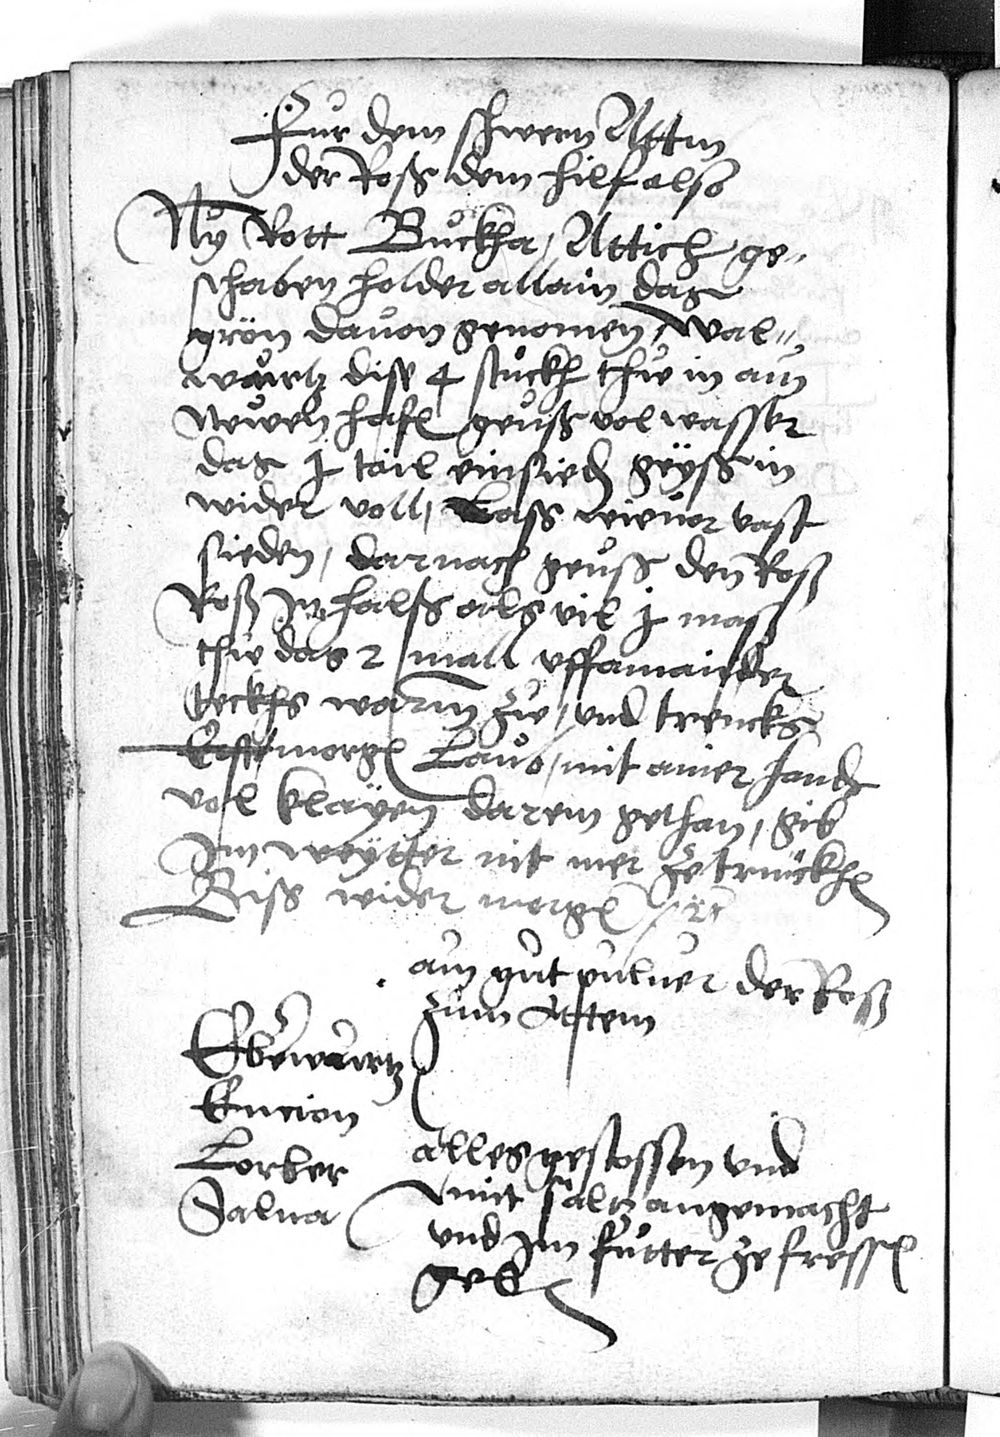 Für dem schwern Attm
der Roß dem hilf also
Ny Rott Buckha, Attich ge„
schaben holder allain das
grön dauon genomen, Wal„
wurtz dise 4 stuckh thue in ain
newen hafen geuß vol wasser
das j tail einsied geyß in
wider voll, Lass wieuor vast
sieden, darnach geuß den Roß
Roß Im halß als vil j maß
thue das 2 mall vffainainder
teckhs warm zue, vnd trencks
morgen Lauo, mit ainer handt
vol klayen darein gethan, gib
Im weytter nit mer ze trinckhen
Biß wider morgen
ain gut puluer der Roß
zum Attem
Eberwurtz
Encion
Lorber
Salua
alles gestossen vnd
mit saltz angemacht
vnd Im fuotter ze fressen
geben